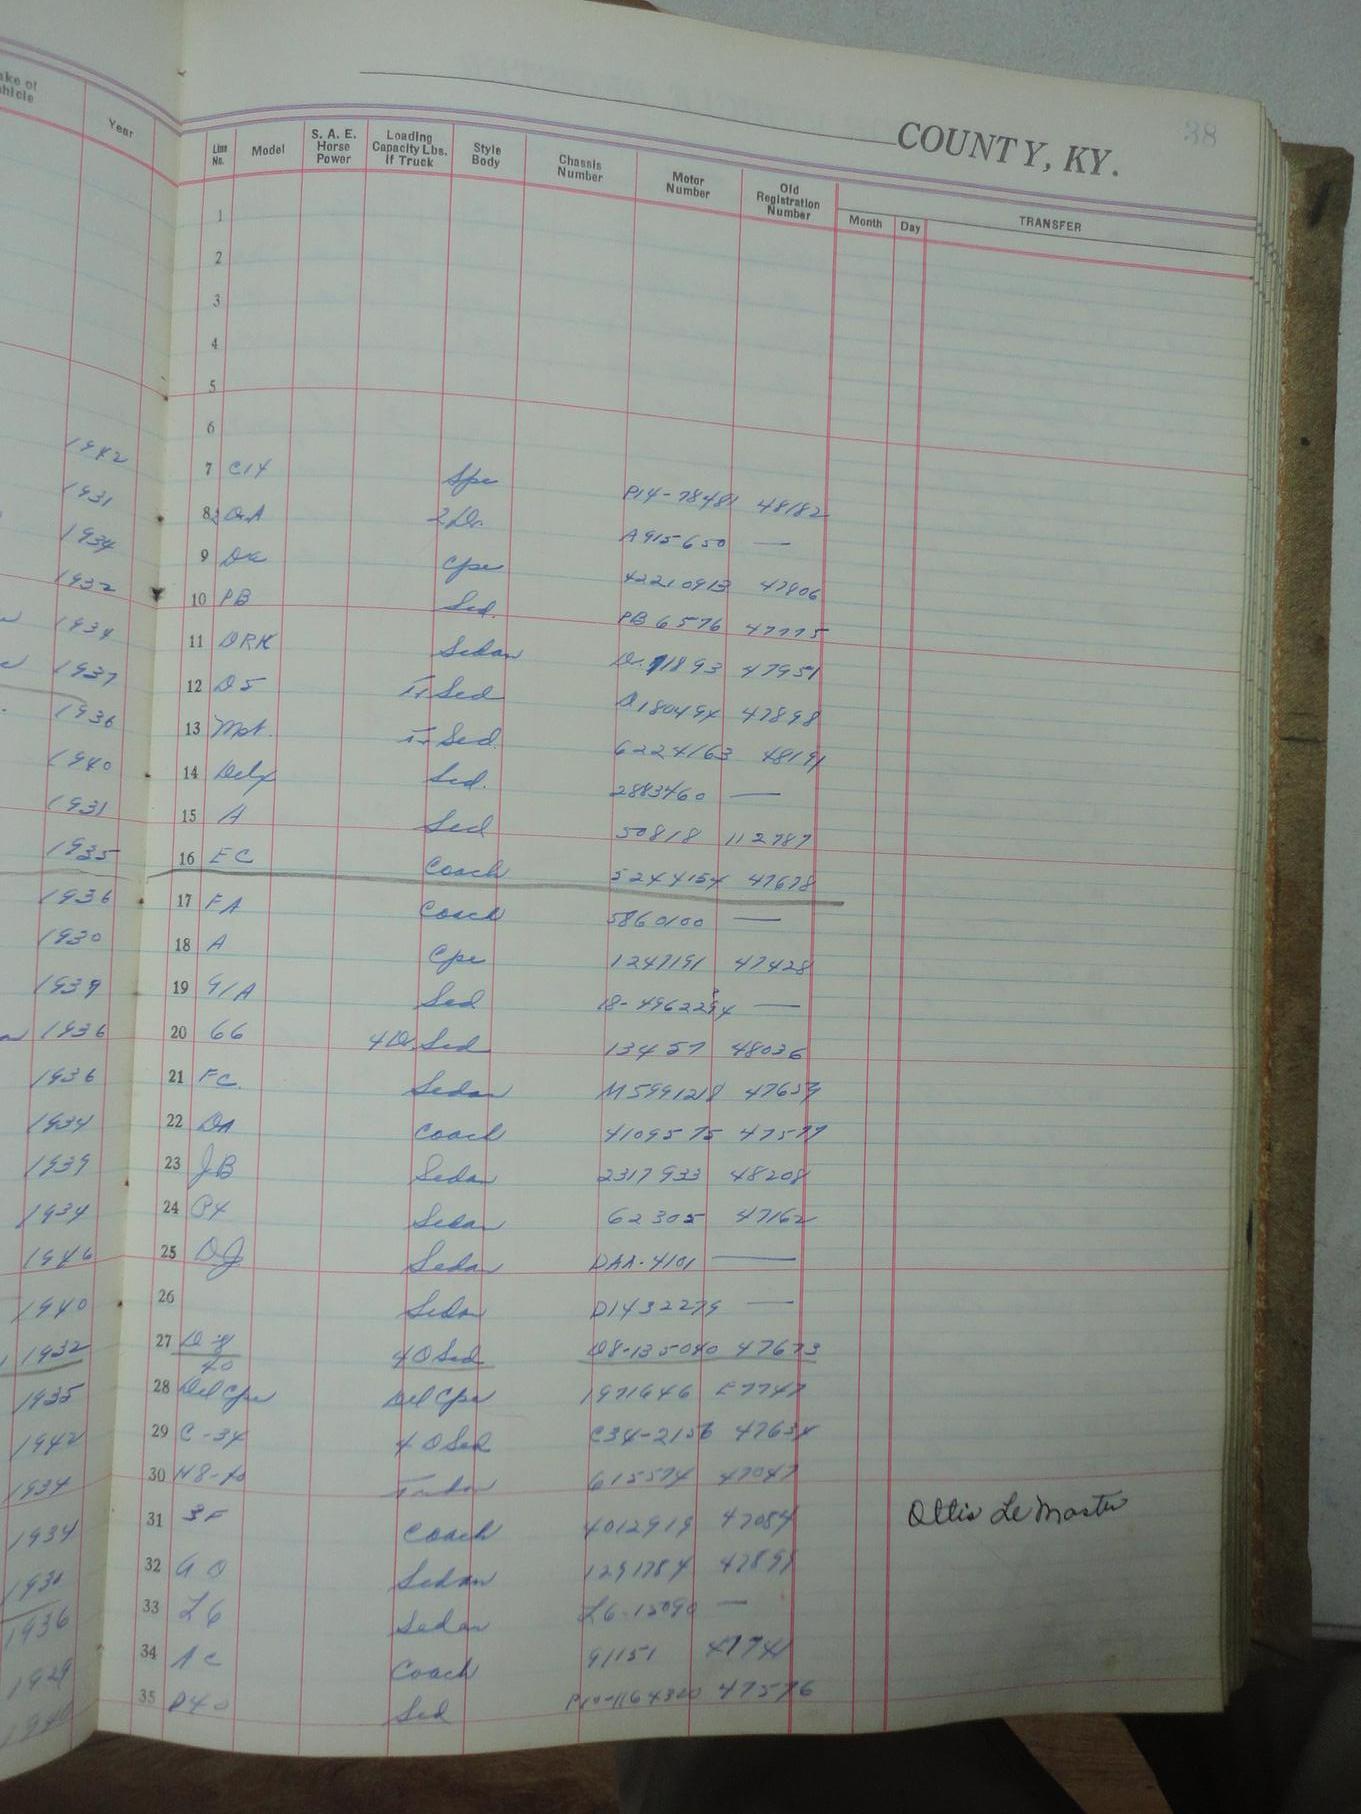 COUNTY, KY. 38
Year Line No. Model S. A. E. Horse Power Loading Capacity Lbs. if Truck Style Body Chassis Number Motor Number Old Registration Number Month Day TRANSFER
1
2
3
4
5
6
1942 7 C14 Spe P14-78481 48182
1931 8 A 2 Dr. A915650 —
1934 9 Cpe 42210913 47806
1932 10 PB Sed. PB 6576 47775
1934 11 DRK Sedan 47951
1937 12 D5 Sed 47898
1936 13 Sed. 6224163 48191
1940 14 Delx Sed. 2883460 —
1931 15 A Sed 50818 112787
1935 16 EC Coach 5244154 47678
1936 17 FA Coach 5860100 —
1930 18 A Cpe 1247191 47428
1939 19 91A Sed —
1936 20 66 4 Dr. Sed 13457 48036
1936 21 FC. Sedan M5991218 47659
1934 22 DA Coach 4109575 47577
1939 23 JB Sedan 2317933 48208
1934 24 Sedan 62305 47162
1946 25 DJ Sedan DAA-4101 —
1940 26 Sedan D1432279 —
1932 27 4 D Sed 47673
1935 28 Del Cpe Del Cpe 1971646 E7747
1942 29 C-34 4 D Sed C34-2156 47634
1934 30 Tudor 615574 47047
1934 31 3F Coach 4012919 47084 Ottis LeMaster
32 Sedan 1291784 47891
1936 33 L6 Sedan L6-15090 —
1929 34 AC Coach 91151 47741
1940 35 D40 Sed P10-1164320 47576